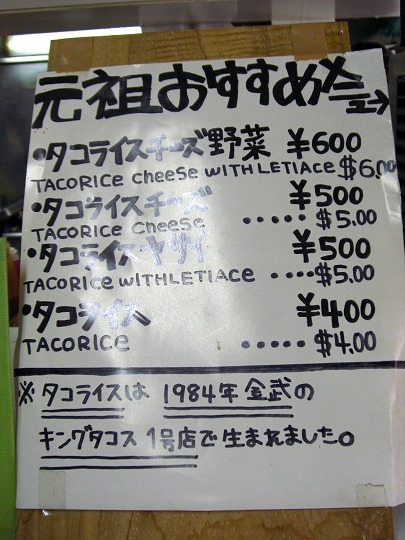 元祖おすすめメニュー
・タコライスチーズ野菜 ¥600
TACORICE cheese WITH LETIACE $6.00
・タコライスチーズ ¥500
TACORICE Cheese ・・・・・$5.00
・タコライスヤサイ ¥500
TACORICE WITHLETIACE ・・・・$5.00
・タコライス ¥400
TACORICE ・・・・・$4.00
※タコライスは 1984年 金武の
キングタコス 1号店で生まれました。